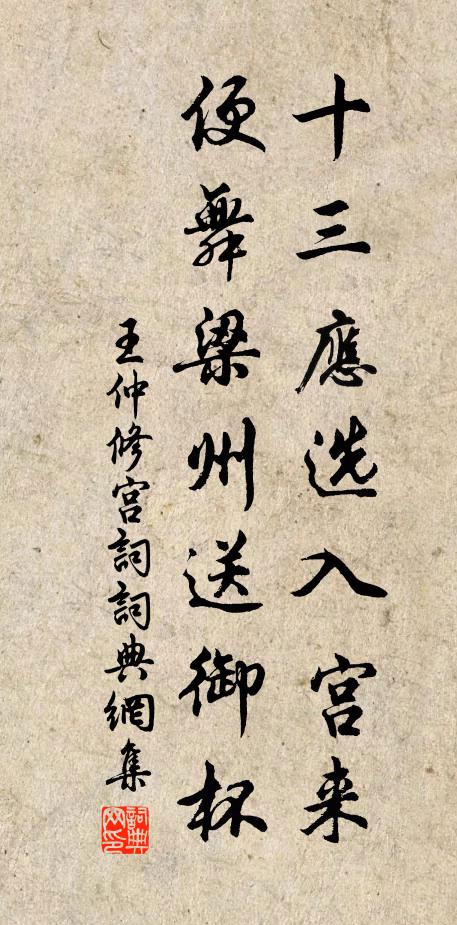 十三應选入宫来
便舞梁州送御杯
王仲修宫詞詞典網集
詞典网印